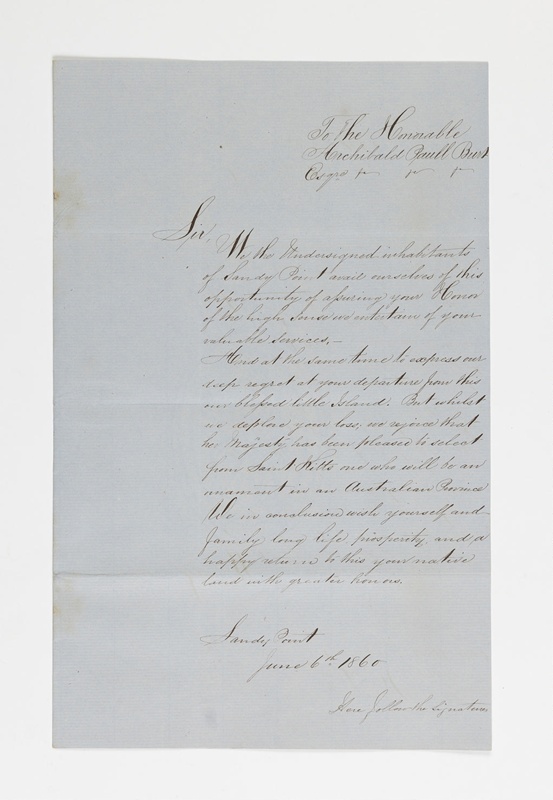 To the Honorable
Archibald Paull Burt
Esqre
Sir,
We, the Undersigned inhabitants
of Sandy Point avail ourselves of this
opportunity of assuring your Honor
of the high sense we entertain of your
valuable services.—
And at the same time to express our
deep regret at your departure from this
our blessed little Island. But whilst
we deplore your loss, we rejoice that
her Majesty has been pleased to select
from Saint Kitts one who will be an
ornament in an Australian Province
We in conclusion wish yourself and
family long life prosperity, and a
happy return to this your native
land with greater honors.
Sandy Point
June 6th. 1860
Here follow the signatures